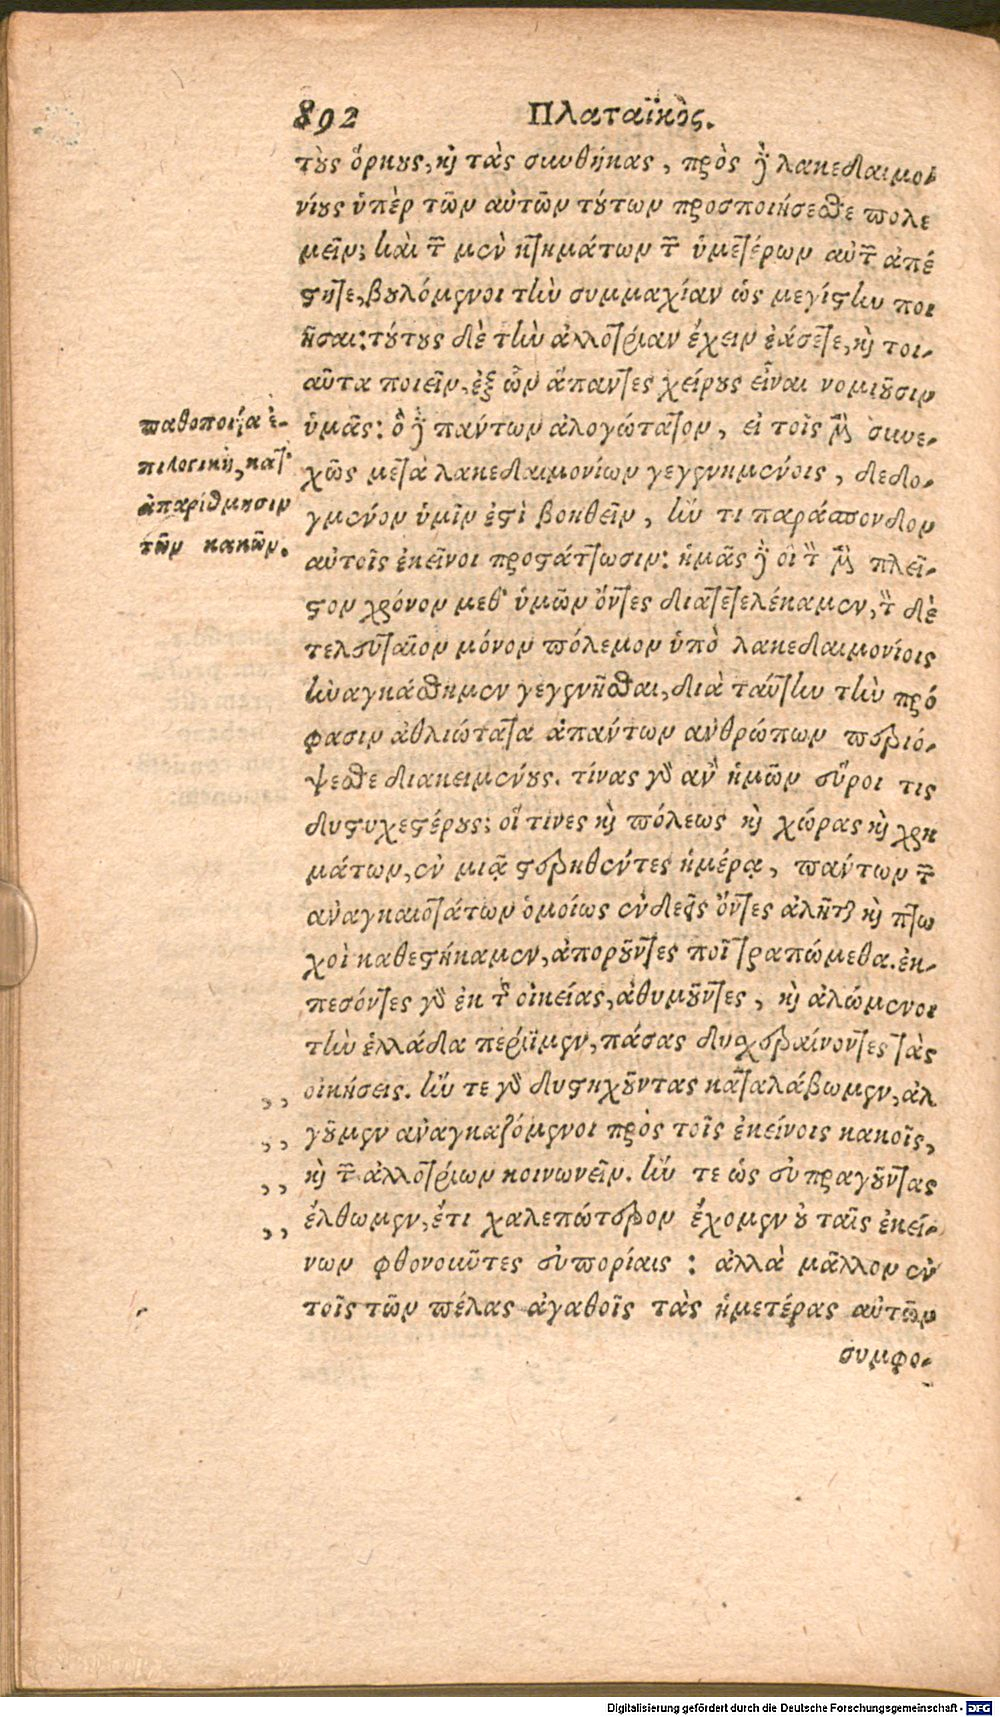 892 Πλαταϊκὸς.
τοὺς ὅρκους, καὶ τὰς συνθήκας, πρὸς δὲ λακεδαιμο
νίους ὑπὲρ τῶν αὐτῶν τούτων προσποιήσεσθε πολε
μεῖν; καὶ τῶν μὲν κτημάτων τῶν ὑμετέρων αὐτῶν ἀπέ
στητε, βουλόμενοι τὴν συμμαχίαν ὡς μεγίστην ποι
ῆσαι: τούτους δὲ τὴν ἀλλοτρίαν ἔχειν ἐάσετε, καὶ τοι-
αῦτα ποιεῖν, ἐξ ὧν ἅπαντες χείρους εἶναι νομιοῦσιν
ὑμᾶς: ὃ δὲ πάντων ἀλογώτατον, εἰ τοῖς μὲν συνε-
χῶς μετὰ λακεδαιμονίων γεγενημένοις, δεδο-
γμένον ὑμῖν ἐστὶ βοηθεῖν, ἤν τι παράσπονδον
αὐτοῖς ἐκεῖνοι προστάττωσιν: ἡμᾶς δὲ οἳ τὸν μὲν πλεῖ-
στον χρόνον μεθ' ὑμῶν ὄντες διατετελέκαμεν, τὸν δὲ
τελευταῖον μόνον πόλεμον ὑπὸ λακεδαιμονίοις
ἠναγκάσθημεν γεγενῆσθαι, διὰ ταύτην τὴν πρό
φασιν ἀθλιώτατα ἁπάντων ἀνθρώπων περιό-
ψεσθε διακειμένους. τίνας γὰρ ἂν ἡμῶν εὕροι τις
δυστυχεστέρους; οἵ τινες καὶ πόλεως καὶ χώρας καὶ χρη
μάτων, ἐν μιᾷ στερηθέντες ἡμέρᾳ, πάντων τῶν
ἀναγκαιοτάτων ὁμοίως ἐνδεεῖς ὄντες ἀλῆται καὶ πτω
χοὶ καθεστήκαμεν, ἀποροῦντες ποῖ τραπώμεθα. ἐκ-
πεσόντες γὰρ ἐκ τῆς οἰκείας, ἀθυμοῦντες, καὶ ἀλώμενοι
τὴν ἑλλάδα περίϊμεν, πάσας δυσχεραίνοντες τὰς
,, οἰκήσεις. ἤν τε γὰρ δυστηχοῦντας καταλάβωμεν, ἀλ
,, γοῦμεν ἀναγκαζόμενοι πρὸς τοῖς ἐκείνοις κακοῖς,
,, καὶ τῶν ἀλλοτρίων κοινωνεῖν. ἤν τε ὡς εὐπραγοῦντας
,, ἔλθωμεν, ἔτι χαλεπώτερον ἔχομεν οὐ ταῖς ἐκεί-
νων φθονοῦντες εὐπορίαις: ἀλλὰ μᾶλλον ἐν
τοῖς τῶν πέλας ἀγαθοῖς τὰς ἡμετέρας αὐτῶν
συμφο-
παθοποιία ἐ-
πιλογικὴ, κατ'
ἀπαρίθμησιν
τῶν κακῶν.
Digitalisierung gefördert durch die Deutsche Forschungsgemeinschaft - DFG